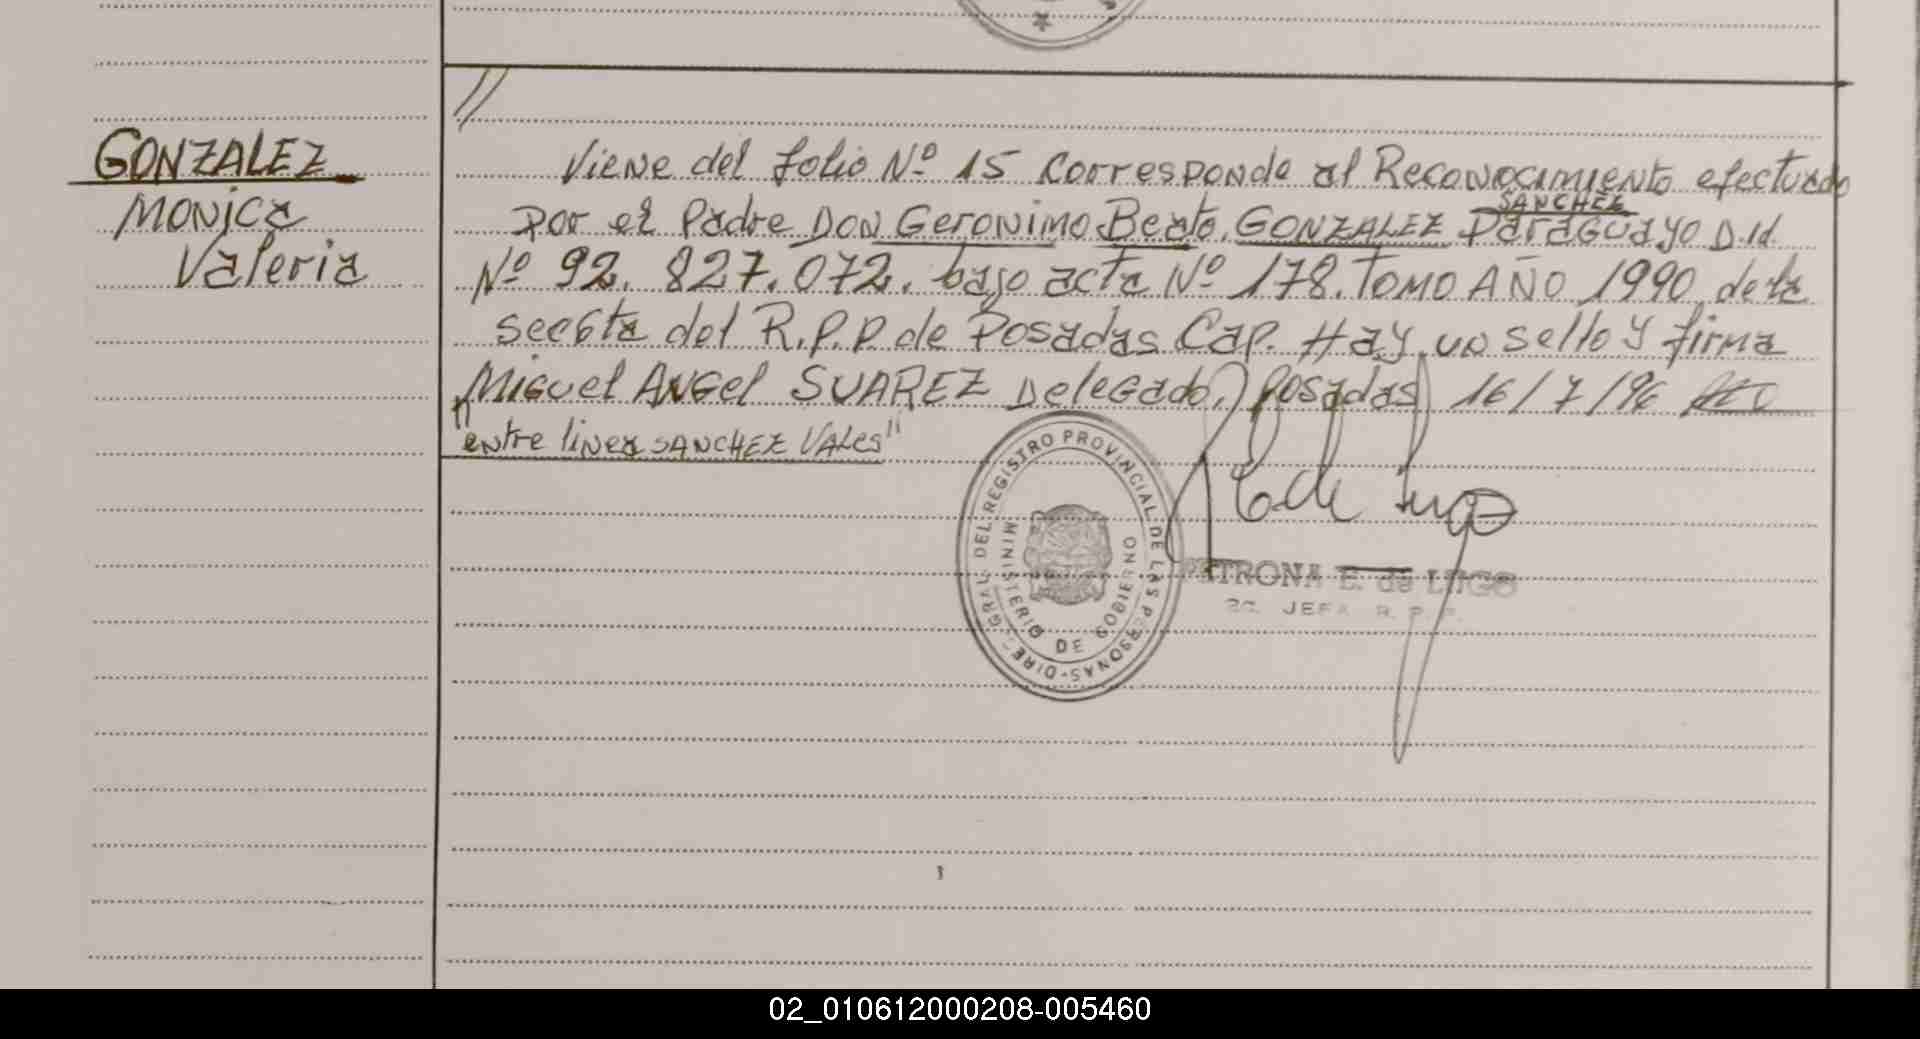 GONZALEZ
Monica
Valeria
//
Viene del folio Nº 15 Corresponde al Reconocimiento efectuado
SANCHEZ
Por el Padre DON Geronimo Beato. GONZALEZ Paraguayo D.Id.
Nº 92.827.072. bajo acta Nº 178. TOMO AÑO 1990 de la
Sec6ta del R.P.P de Posadas Cap. Hay un sello y firma
Miguel ANGel SUAREZ Delegado. Posadas 16/7/96
"entre linea SANCHEZ VALES"
DIREC. GRAL. DEL REGISTRO PROVINCIAL DE LAS PERSONAS
MINISTERIO DE GOBIERNO
PETRONA E. de LUGO
JEFA R. P. P.
02_010612000208-005460